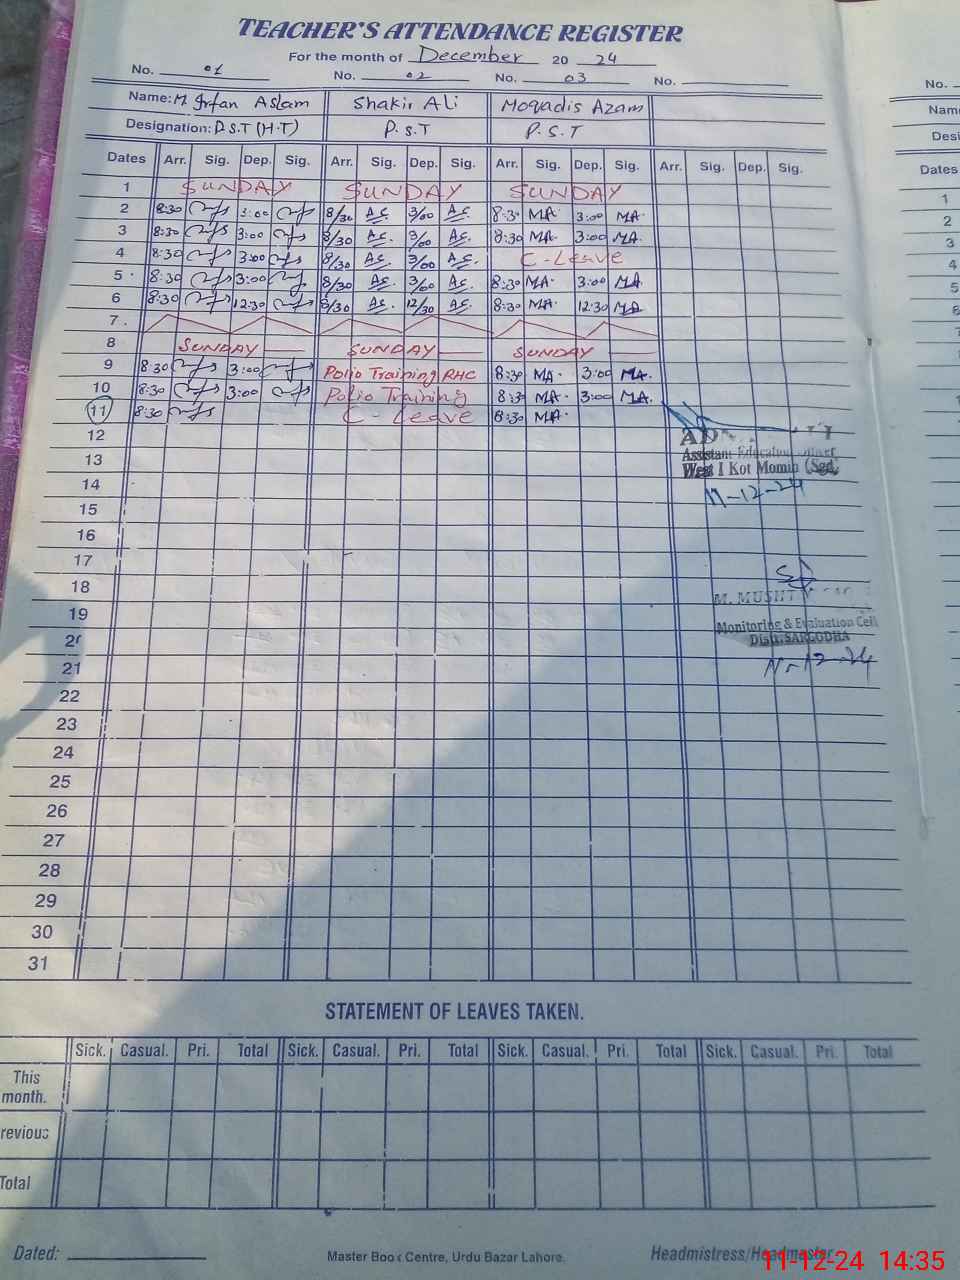 TEACHER'S ATTENDANCE REGISTER
For the month of December 20 24
No. 01 No. 02 No. 03 No.
Name: M Irfan Aslam Shakir Ali Moqadis Azam
Designation: P.S.T (H.T) P.S.T P.S.T
Dates Arr. Sig. Dep. Sig. Arr. Sig. Dep. Sig. Arr. Sig. Dep. Sig. Arr. Sig. Dep. Sig.
1 SUNDAY SUNDAY SUNDAY
2 8:30 3:00 8/30 A.S. 3/00 A.S. 8:30 MA. 3:00 MA.
3 8:30 3:00 8/30 A.S. 3/00 A.S. 8:30 MA. 3:00 MA.
4 8:30 3:00 8/30 A.S. 3/00 A.S. C-Leave
5 8:30 3:00 8/30 A.S. 3/00 A.S. 8:30 MA. 3:00 MA.
6 8:30 12:30 8/30 A.S. 12/30 A.S. 8:30 MA. 12:30 MA.
7
8 SUNDAY SUNDAY SUNDAY
9 8:30 3:00 Polio Training RHC 8:30 MA. 3:00 MA.
10 8:30 3:00 Polio Training 8:30 MA. 3:00 MA.
11 8:30 C-Leave 8:30 MA.
12
13 Assistant Education
West I Kot Momin (Sgd.
14 11-12-24
15
16
17
18
M. MUSHT
19
Monitoring & Evaluation Cell
20 Distt. SARGODHA
21 11-12-24
22
23
24
25
26
27
28
29
30
31
STATEMENT OF LEAVES TAKEN.
Sick. Casual. Pri. Total Sick. Casual. Pri. Total Sick. Casual. Pri. Total Sick. Casual. Pri. Total
This
month.
revious
Total
Dated: Master Book Centre, Urdu Bazar Lahore. Headmistress/Headmaster
11-12-24 14:35
No.
Name
Desi
Dates
1
2
3
4
5
6